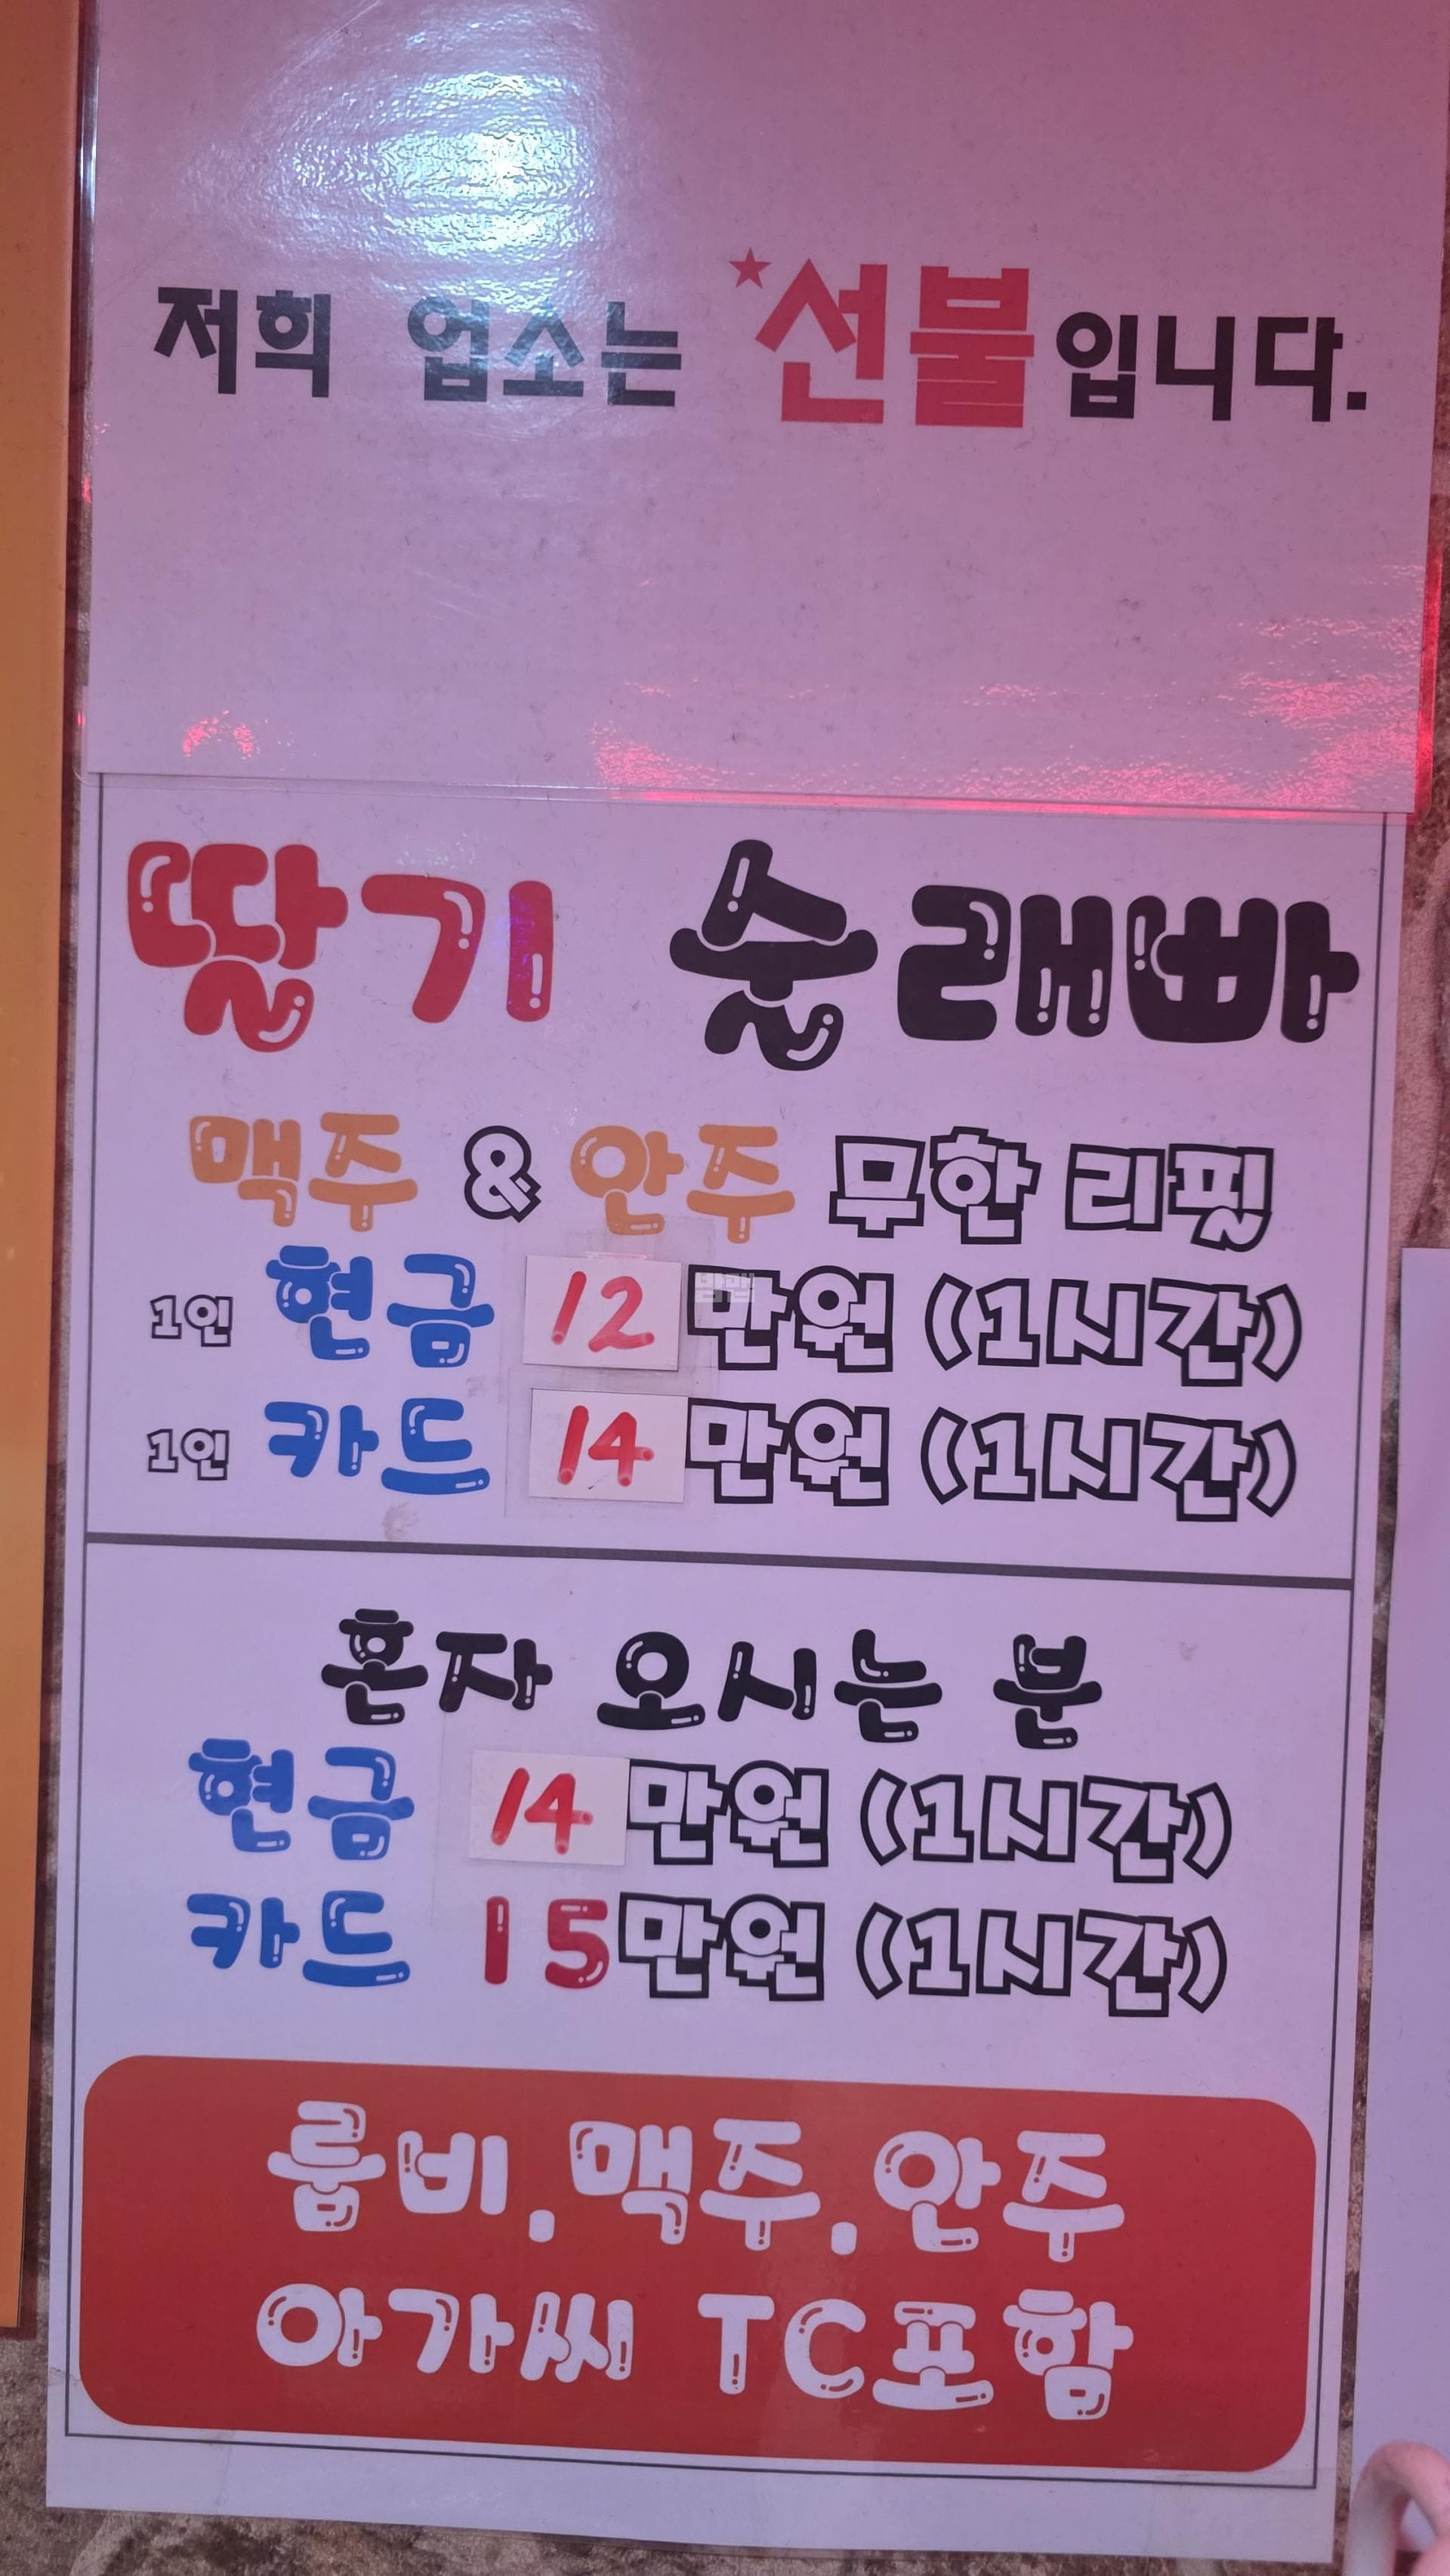 저희 업소는 *선불입니다.
딸기 술래빠
맥주 & 안주 무한 리필
1인 현금 12만원 (1시간)
1인 카드 14만원 (1시간)
혼자 오시는 분
현금 14만원 (1시간)
카드 15만원 (1시간)
룸비.맥주.안주
아가씨 TC포함